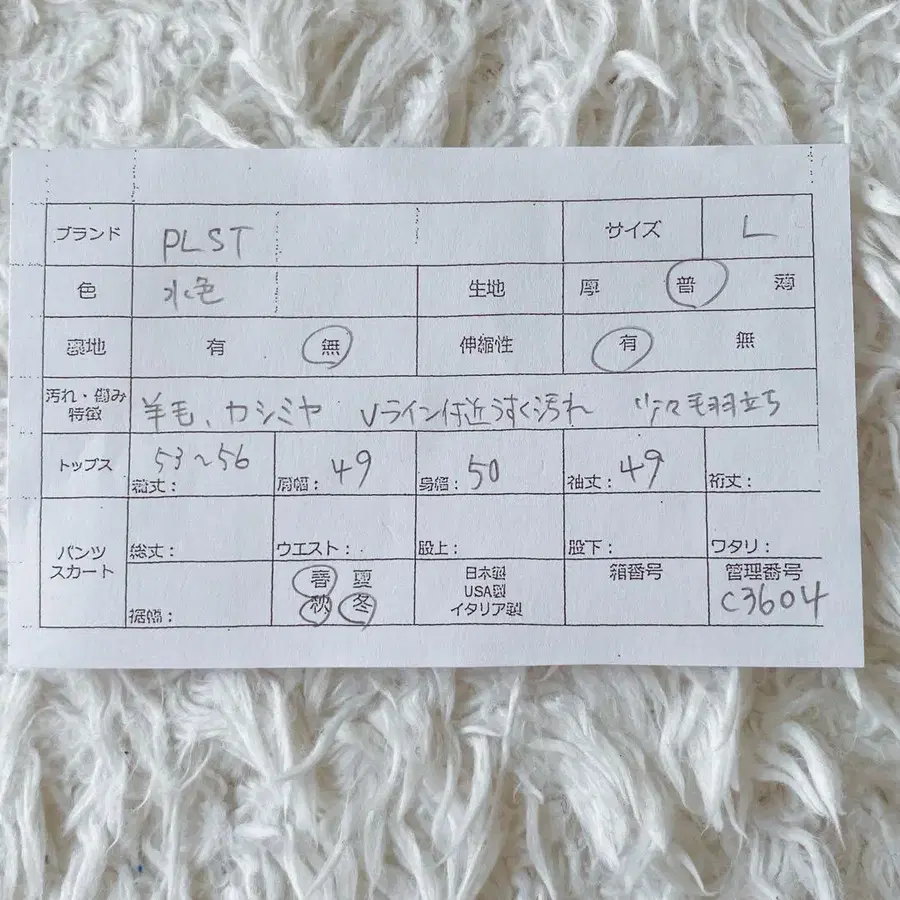 ブランド PLST サイズ L
色 水色 生地 厚 普 薄
裏地 有 無 伸縮性 有 無
汚れ・傷み
特徴
羊毛、カシミヤ Vライン付近うすく汚れ 少々毛羽立ち
トップス
53~56 49 50 49
着丈: 肩幅: 身幅: 袖丈: 裄丈:
パンツ
スカート
総丈: ウエスト: 股上: 股下: ワタリ:
裾幅:
春 夏
秋 冬
日本製
USA製
イタリア製
箱番号
管理番号
C3604